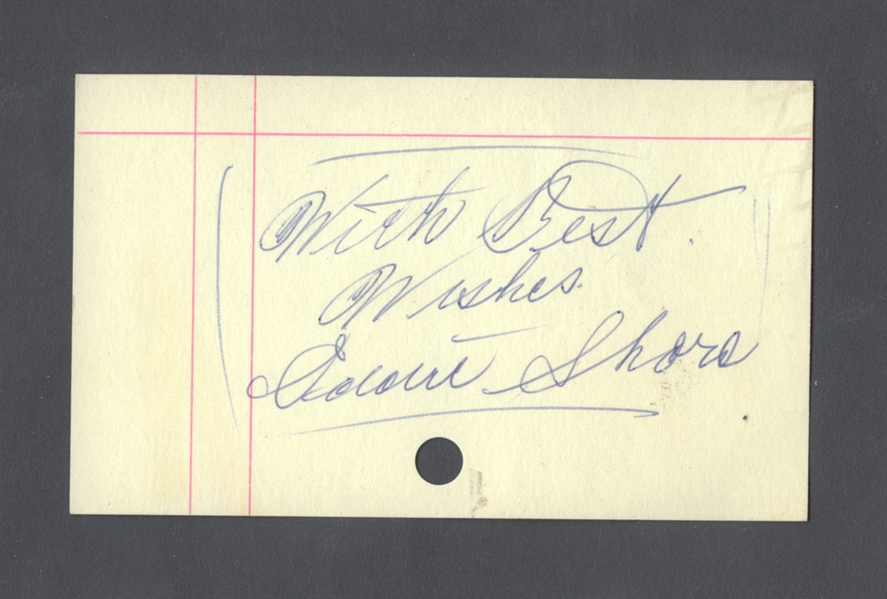 With Best
Wishes
Eddie Shore